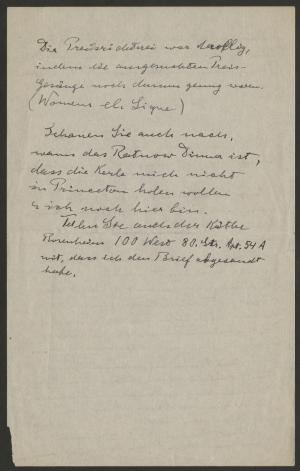 Die Preisrichterei war
indem die ausgemachten Preis-
Gesänge noch dumm genug waren.
(Womens
Schauen Sie auch nach,
wann das Ratnow Dinner ist,
dass die Kerle mich nicht
in Princeton holen wollen
& ich noch hier bin.
Teilen Sie auch der Käthe
Rosenheim 100 West 80. Str. Apt. 54 A
mit, dass ich den Brief abgesandt
habe.